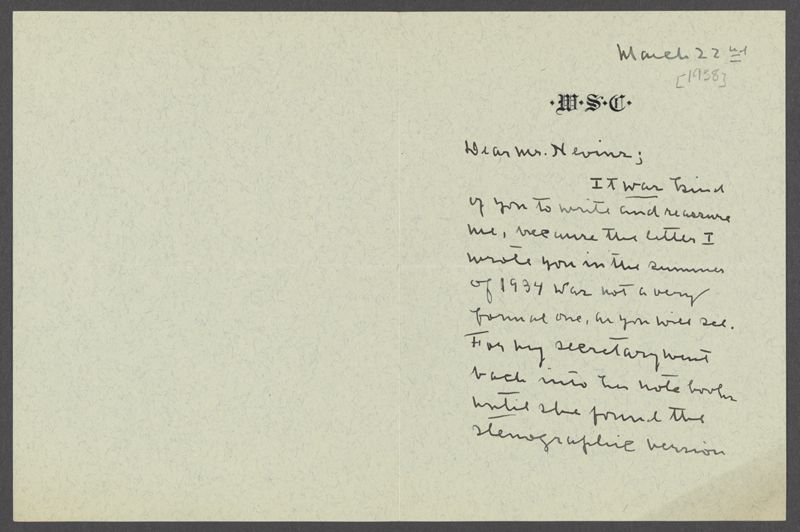 March 22nd
[1938]
·W·S·C·
Dear Mr. Nevins;
It was kind
of you to write and reassure
me, because the letter I
wrote you in the summer
of 1934 was not a very
formal one, as you will see.
For my secretary went
back into her note books
until she found the
stenographic version